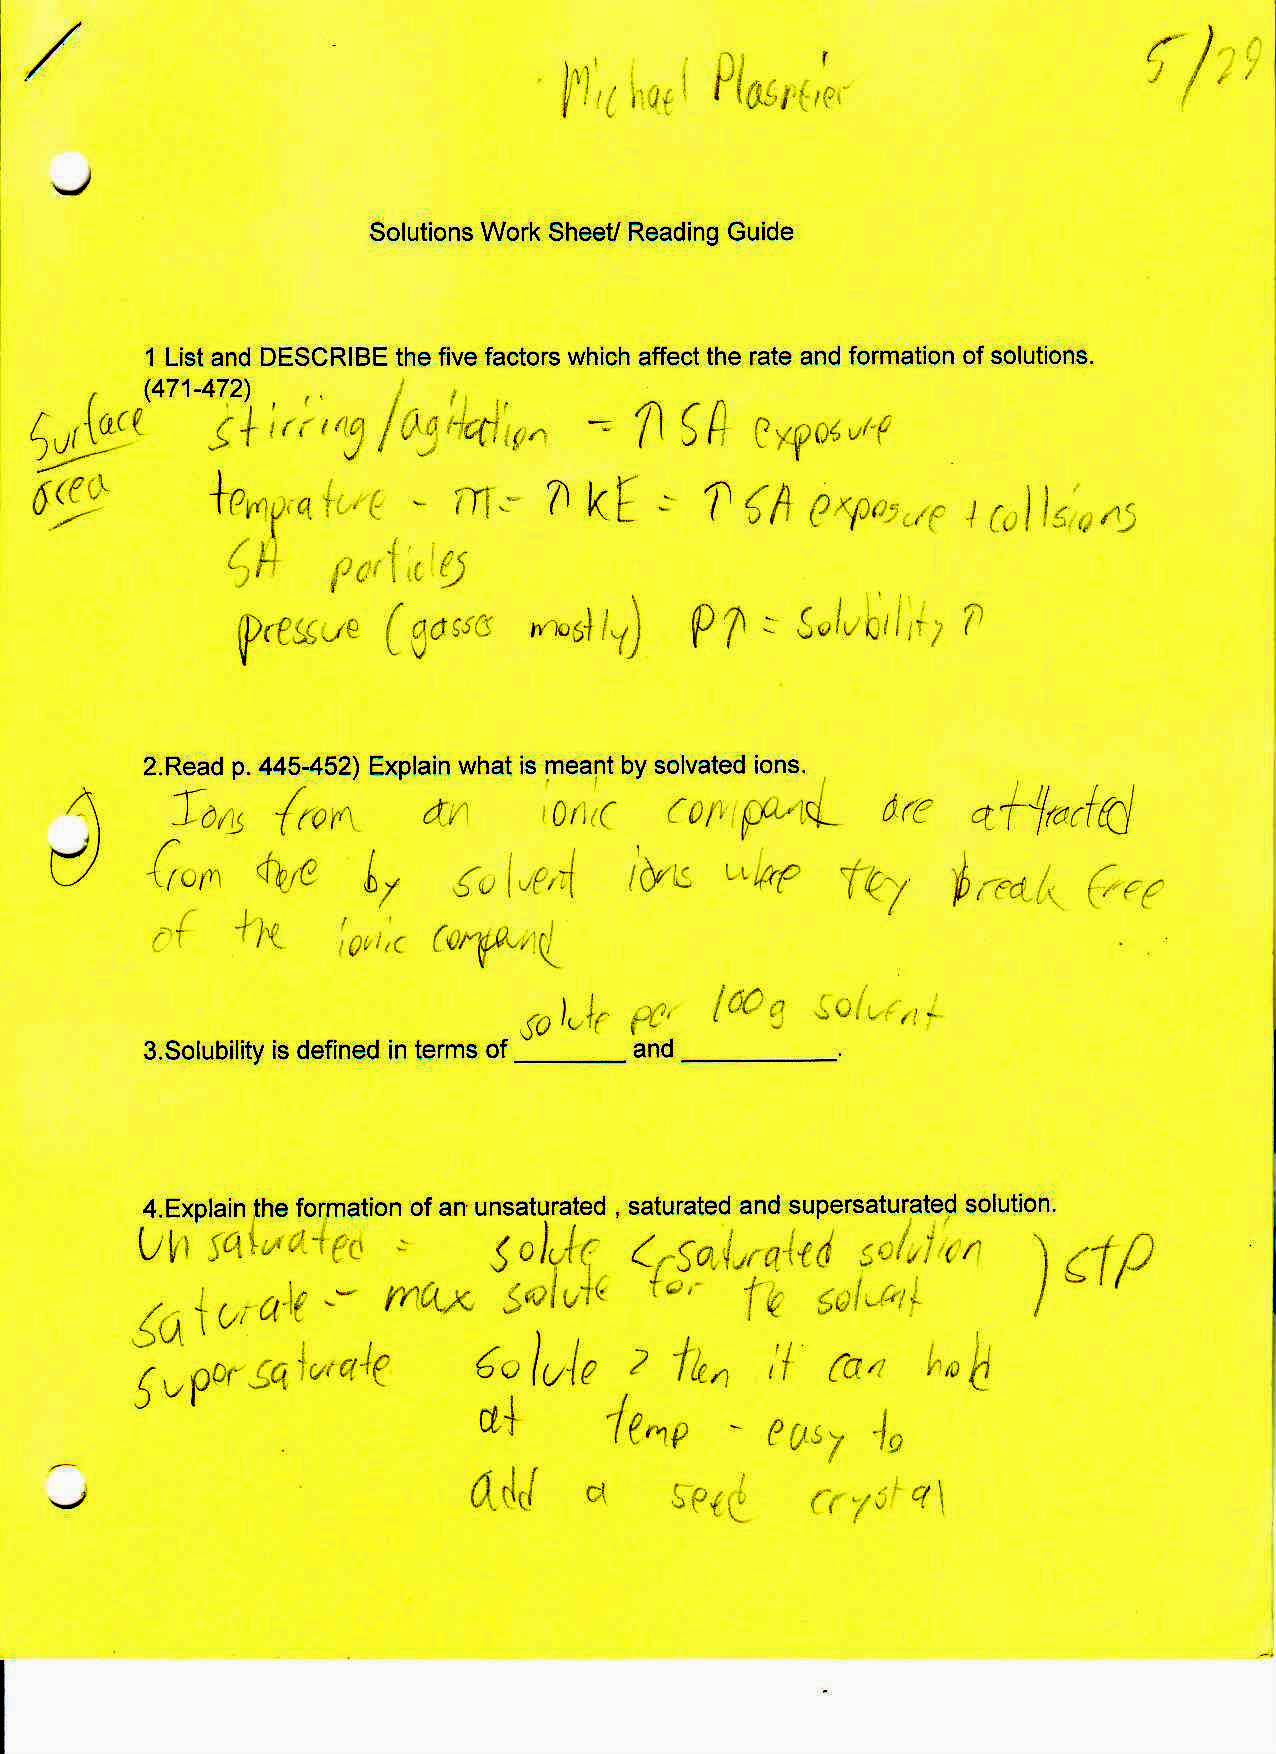 Michael 5/29
Solutions Work Sheet/ Reading Guide
1 List and DESCRIBE the five factors which affect the rate and formation of solutions.
(471-472)
Surface area
stirring/agitation = ↑ SA exposure
temprature - = ↑ KE = ↑ SA exposure + collisions
SA particles
pressure (gasses mostly) P↑ = Solubility ↑
2.Read p. 445-452) Explain what is meant by solvated ions.
Ions from an ionic compand are attracted
from by solvent ions they break free
of the ionic compand
solute per 100g solvent
3.Solubility is defined in terms of ________ and ___________.
4.Explain the formation of an unsaturated , saturated and supersaturated solution.
Unsaturated = solute < saturated solution
saturate - max solute for the solvent ) STP
supersaturate solute > then it can hold
at temp - easy to
add a seed crystal